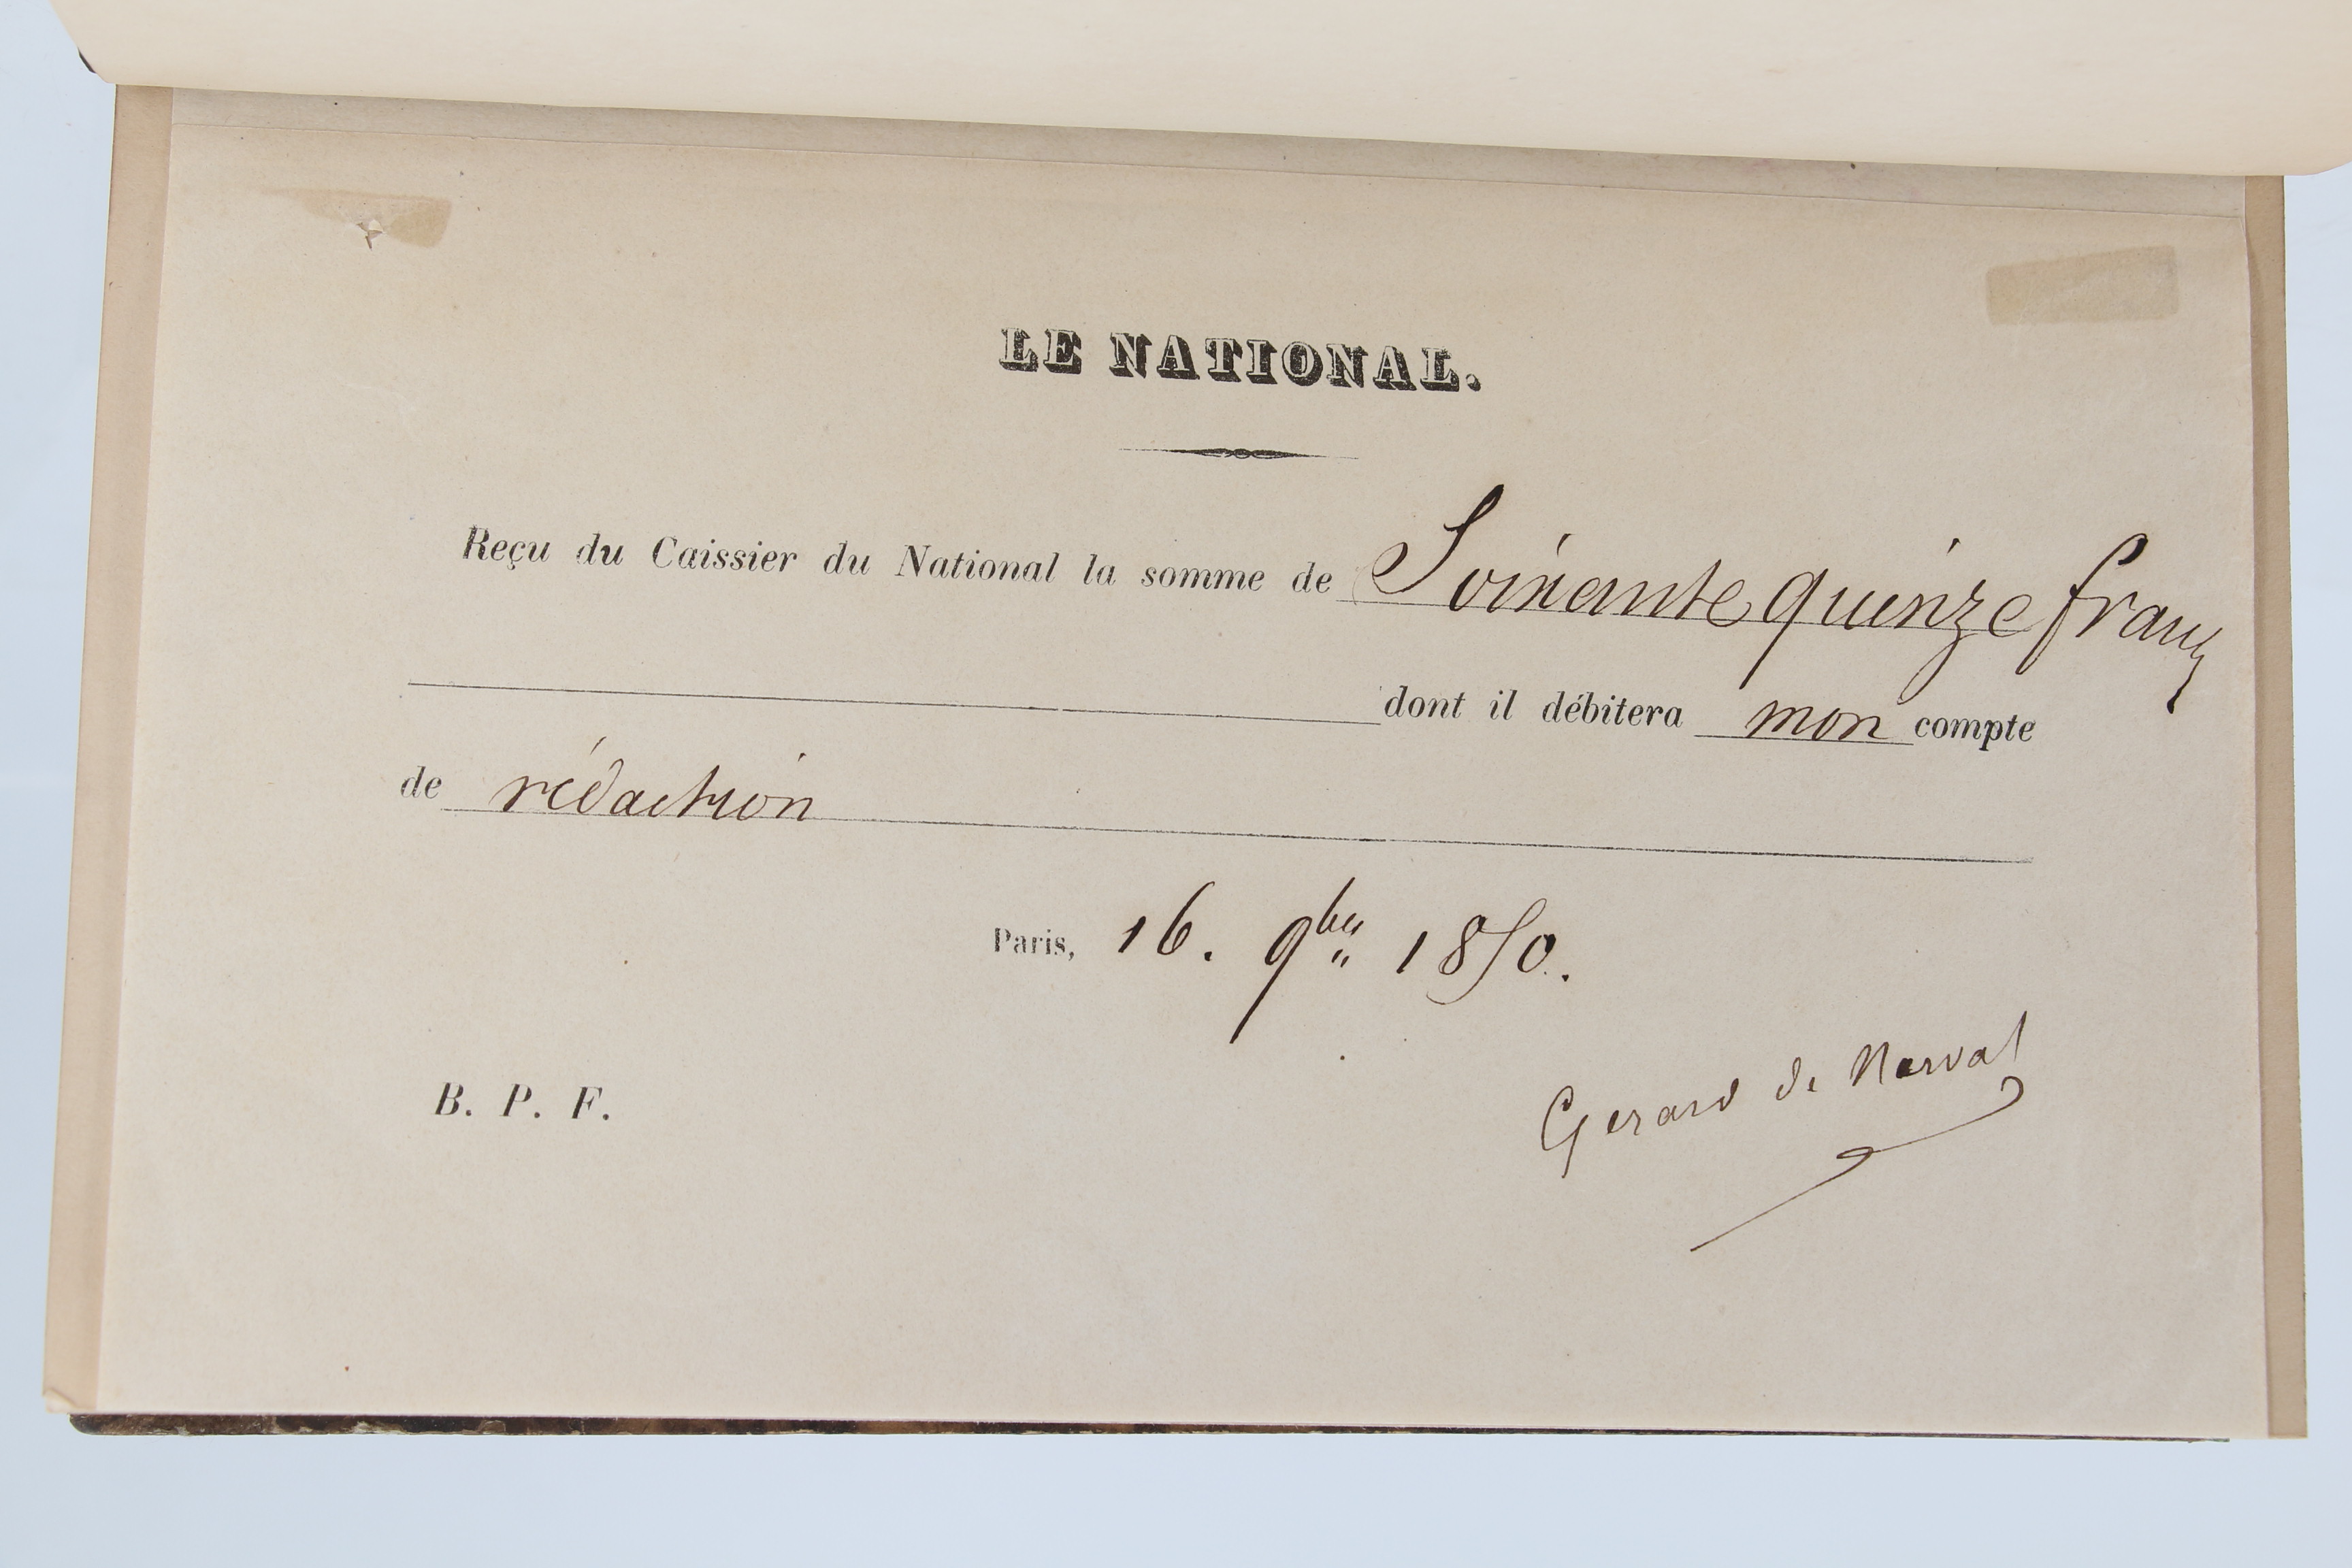 LE NATIONAL.
Reçu du Caissier du National la somme de Soixante quinze francs
dont il débitera mon compte
de rédaction
Paris, 16. 9bre 1850.
Gerard de Nerval
B. P. F.